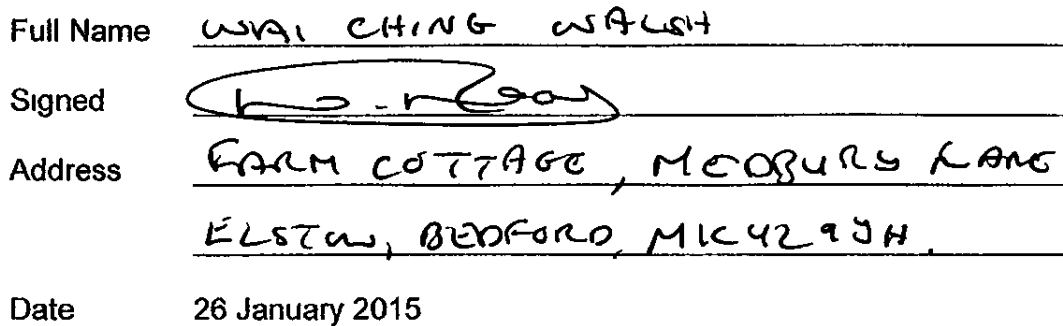 Full Name WAI CHING WALSH
Signed
Address FARM COTTAGE, MEDBURY LANE
ELSTOW, BEDFORD, MK42 9JH.
Date 26 January 2015